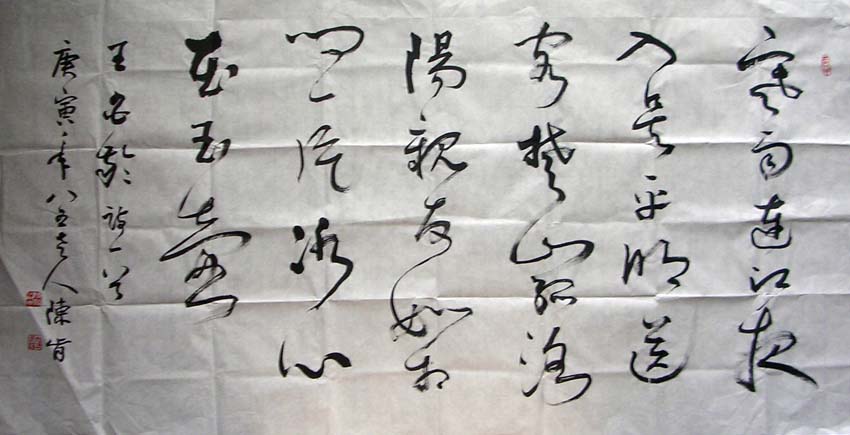 寒雨連江夜
入吳平明送
客楚山孤洛
陽親友如相
問一片冰心
在玉壺
王昌齡詩一首
庚寅年八五老人陳肯